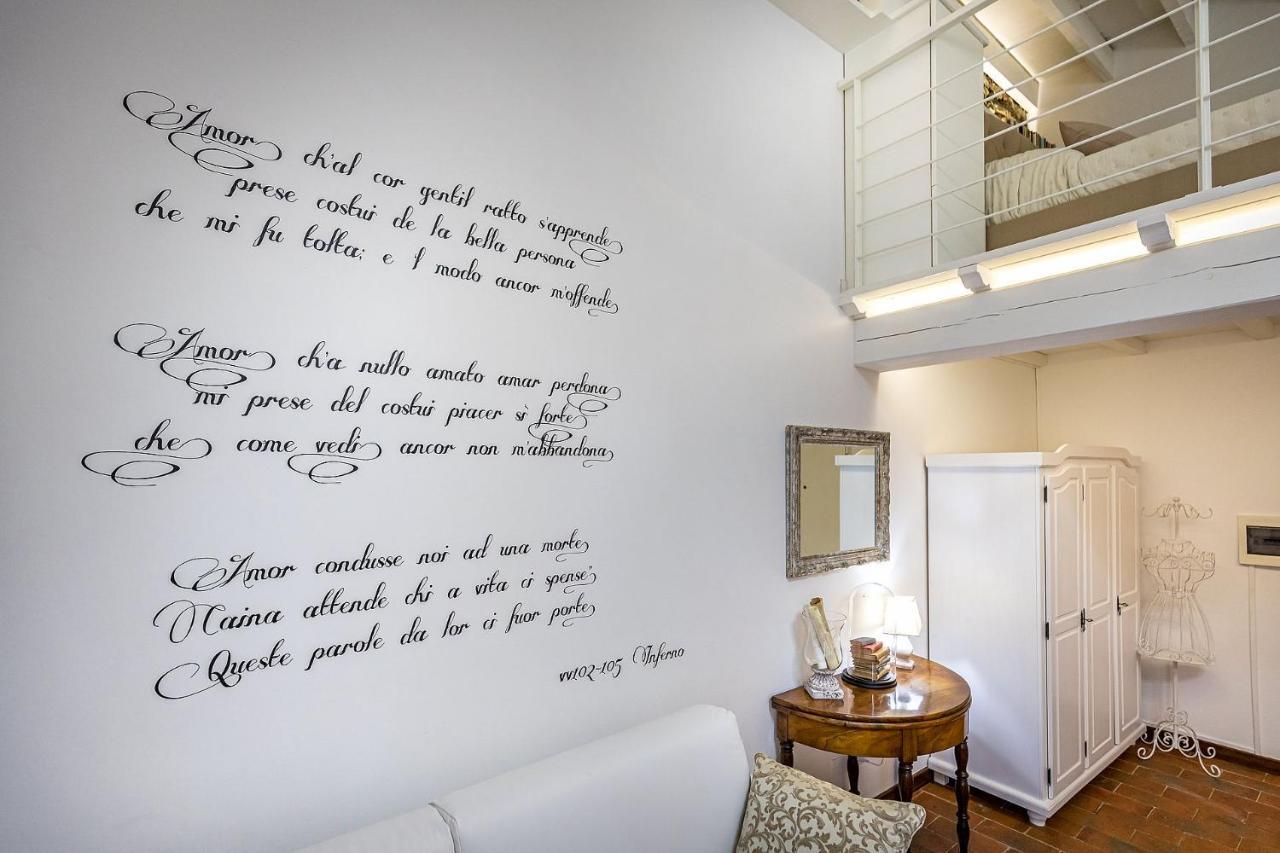 Amor ch'al cor gentil ratto s'apprende
prese costui de la bella persona
che mi fu tolta; e 'l modo ancor m'offende
Amor ch'a nullo amato amar perdona
mi prese del costui piacer sì forte
che come vedi ancor non m'abbandona
Amor condusse noi ad una morte
Caina attende chi a vita ci spense"
Queste parole da lor ci fuor porte
vv102-105 Inferno